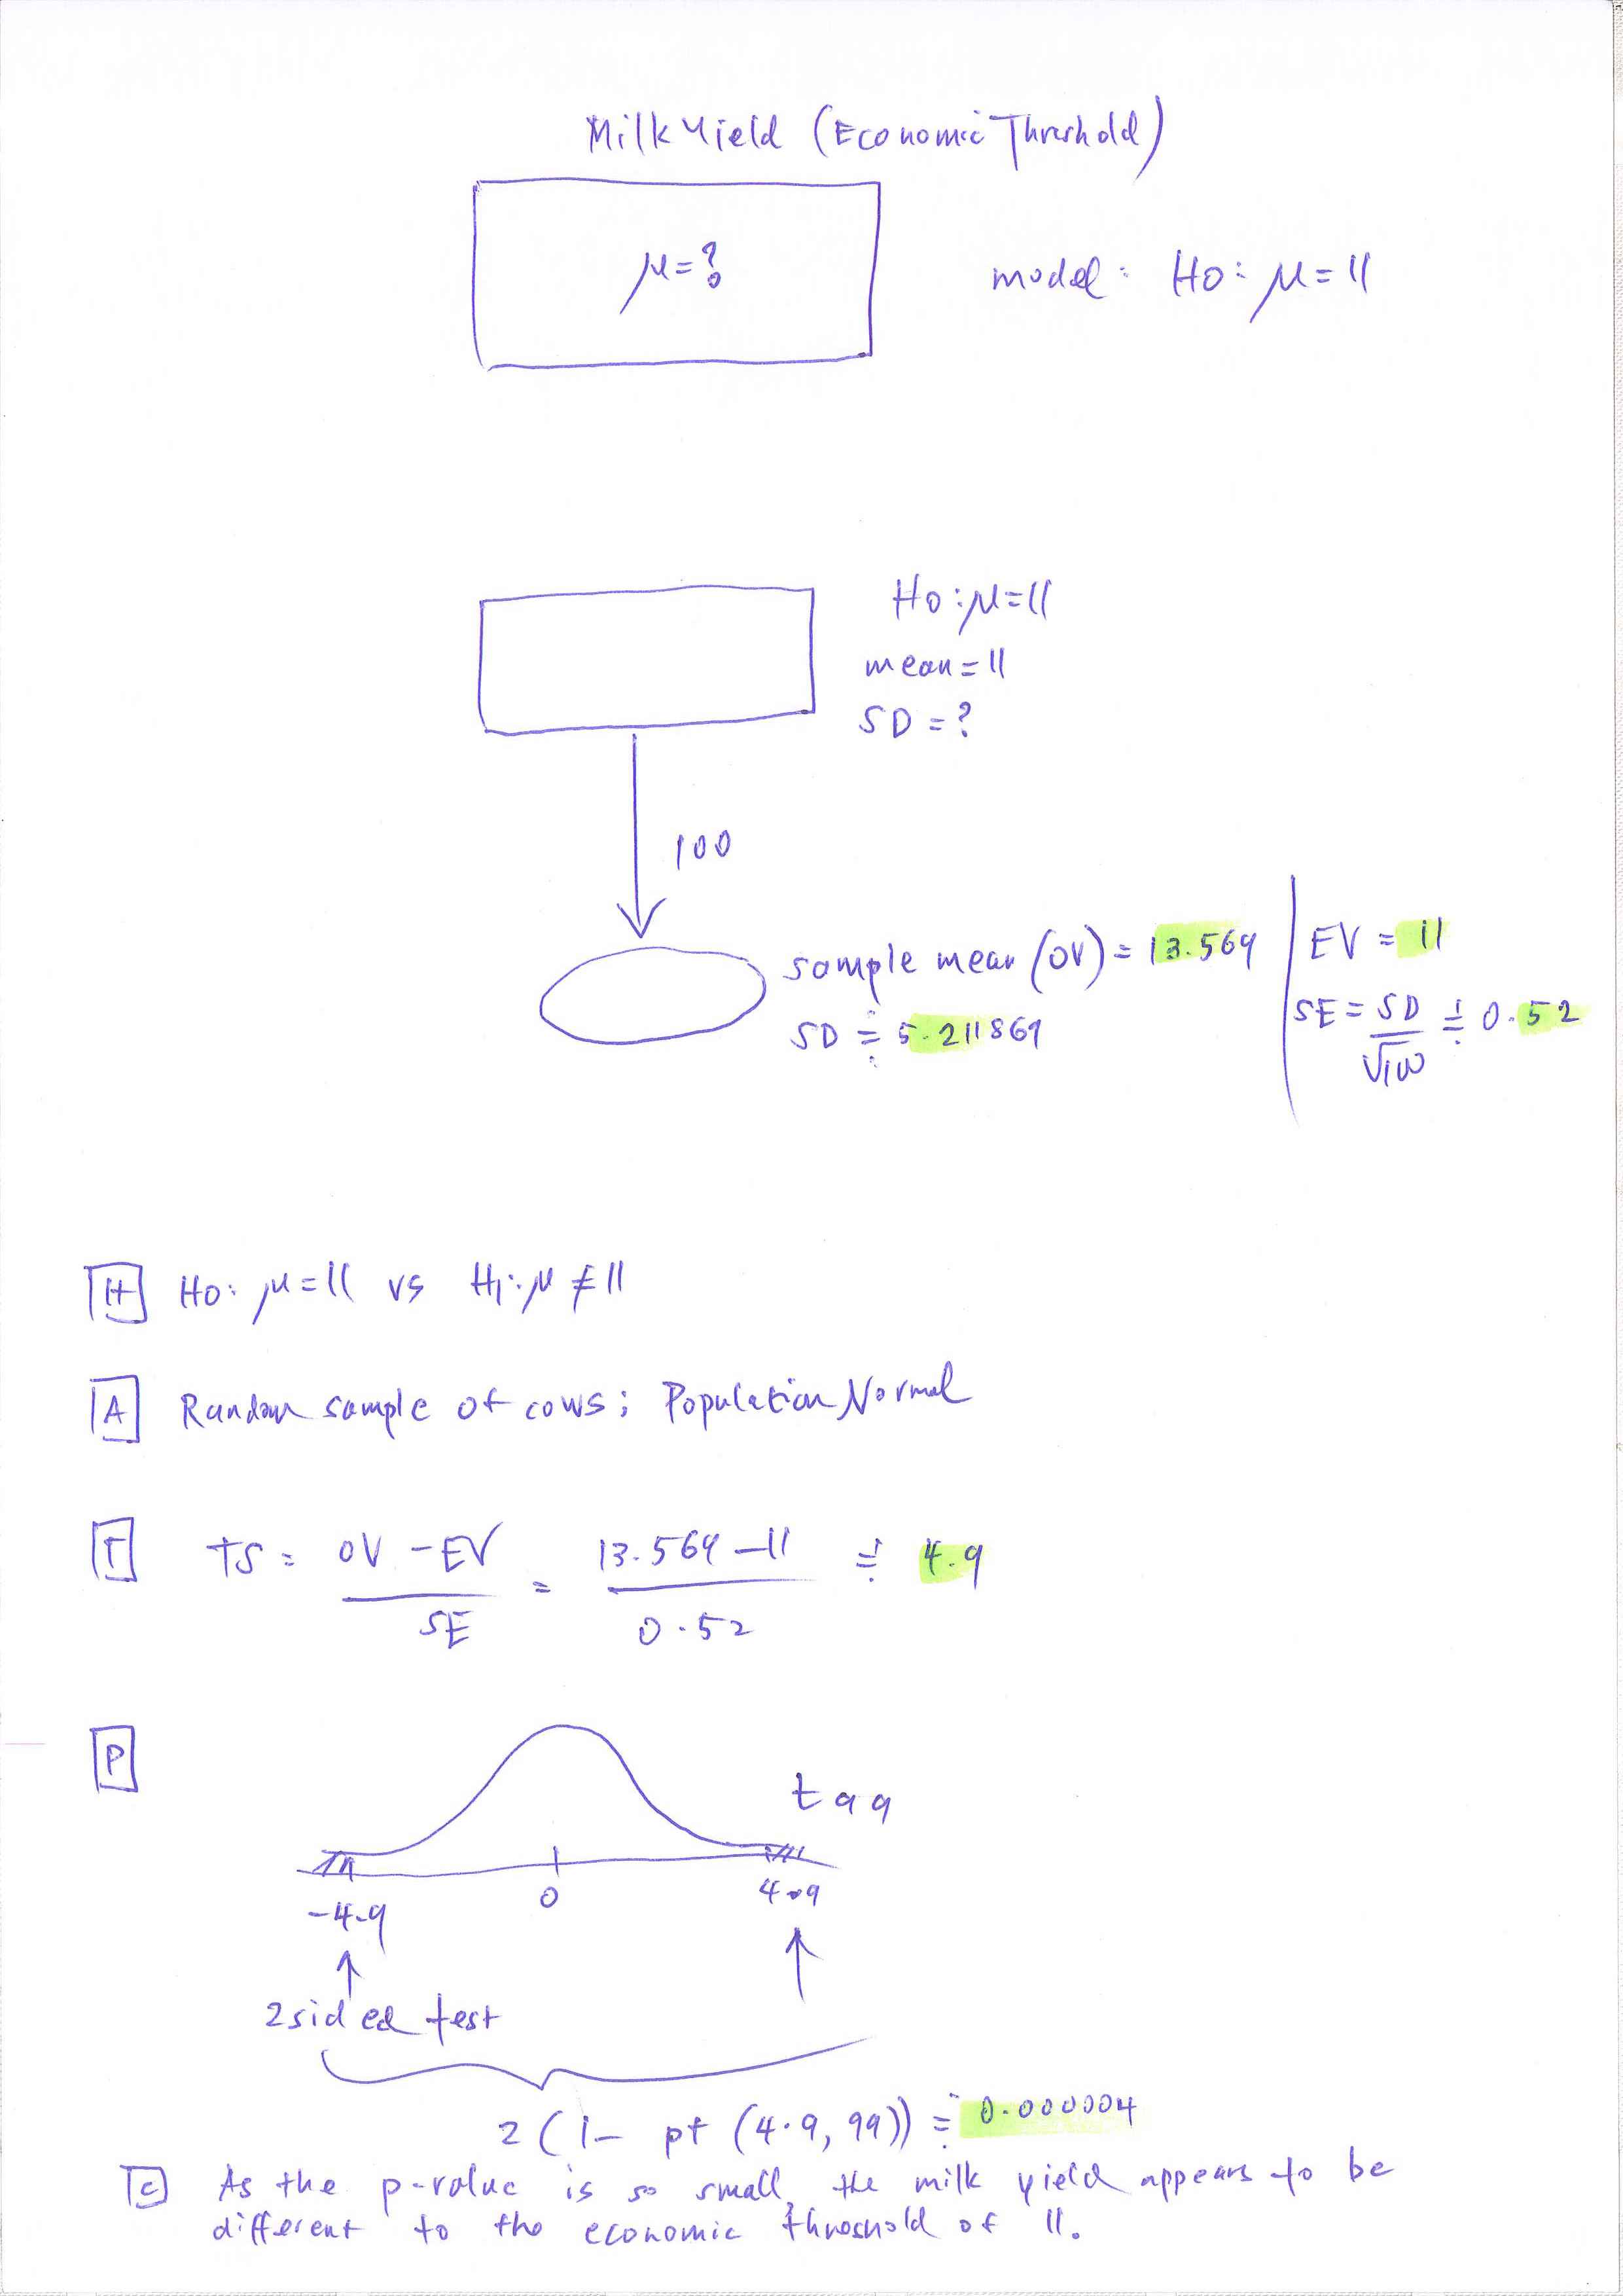 Milk Yield (Economic Threshold)
μ=?
model: Ho: μ=11
Ho: μ=11
mean=11
SD=?
100
sample mean (OV) = 13.569
SD ≑ 5.211869
EV = 11
SE = SD/√100 ≑ 0.52
H Ho: μ=11 vs H1: μ≠11
A Random sample of cows; Population Normal
T TS = (OV - EV)/SE = (13.569 - 11)/0.52 ≑ 4.9
P
t99
-4.9 0 4.9
2 sided test
2(1- pt (4.9, 99)) ≑ 0.000004
C As the p-value is so small, the milk yield appears to be
different to the economic threshold of 11.